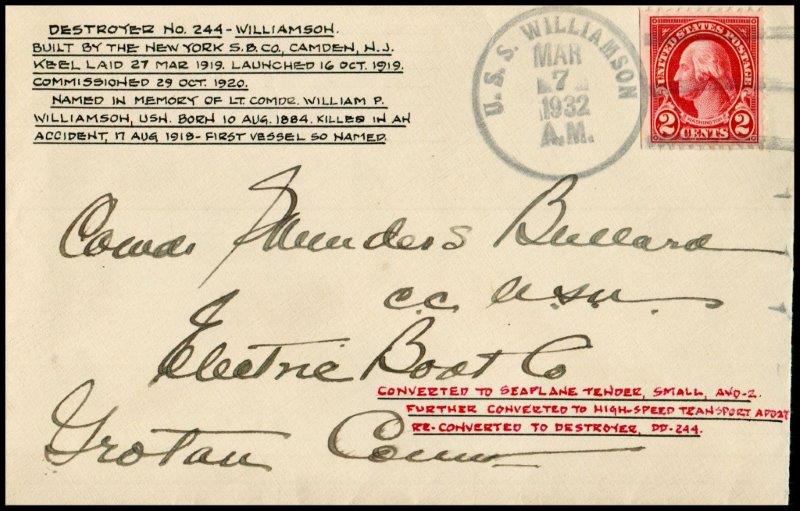 DESTROYER NO. 244-WILLIAMSON.
BUILT BY THE NEW YORK S.B.CO., CAMDEN, N.J.
KEEL LAID 27 MAR 1919. LAUNCHED 16 OCT. 1919.
COMMISSIONED 29 OCT. 1920.
NAMED IN MEMORY OF LT. COMDR. WILLIAM P.
WILLIAMSON, USN. BORN 10 AUG. 1884. KILLED IN AN
ACCIDENT, 17 AUG 1918-FIRST VESSEL SO NAMED.
U.S.S. WILLIAMSON
MAR
7
1932
A.M.
UNITED STATES POSTAGE
WASHINGTON
2 CENTS 2
Comdr Saunders Bullard
C.C. U.S.N.
Electric Boat Co
CONVERTED TO SEAPLANE TENDER, SMALL, AVD-2.
FURTHER CONVERTED TO HIGH-SPEED TRANSPORT APD27
RE-CONVERTED TO DESTROYER, DD-244.
Groton Conn